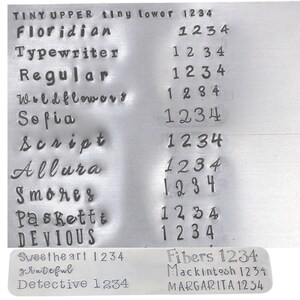 TINY UPPER tiny lower 1234
Floridian 1234
Typewriter 1234
Regular 1234
Wildflowers 1234
Sofia 1234
Script 1234
Allura 1234
Smores 1234
Paskett 1234
DEVIOUS 1234
Sweetheart 1234
Detective 1234
Fibers 1234
Mackintosh 1234
MARGARITA 1234